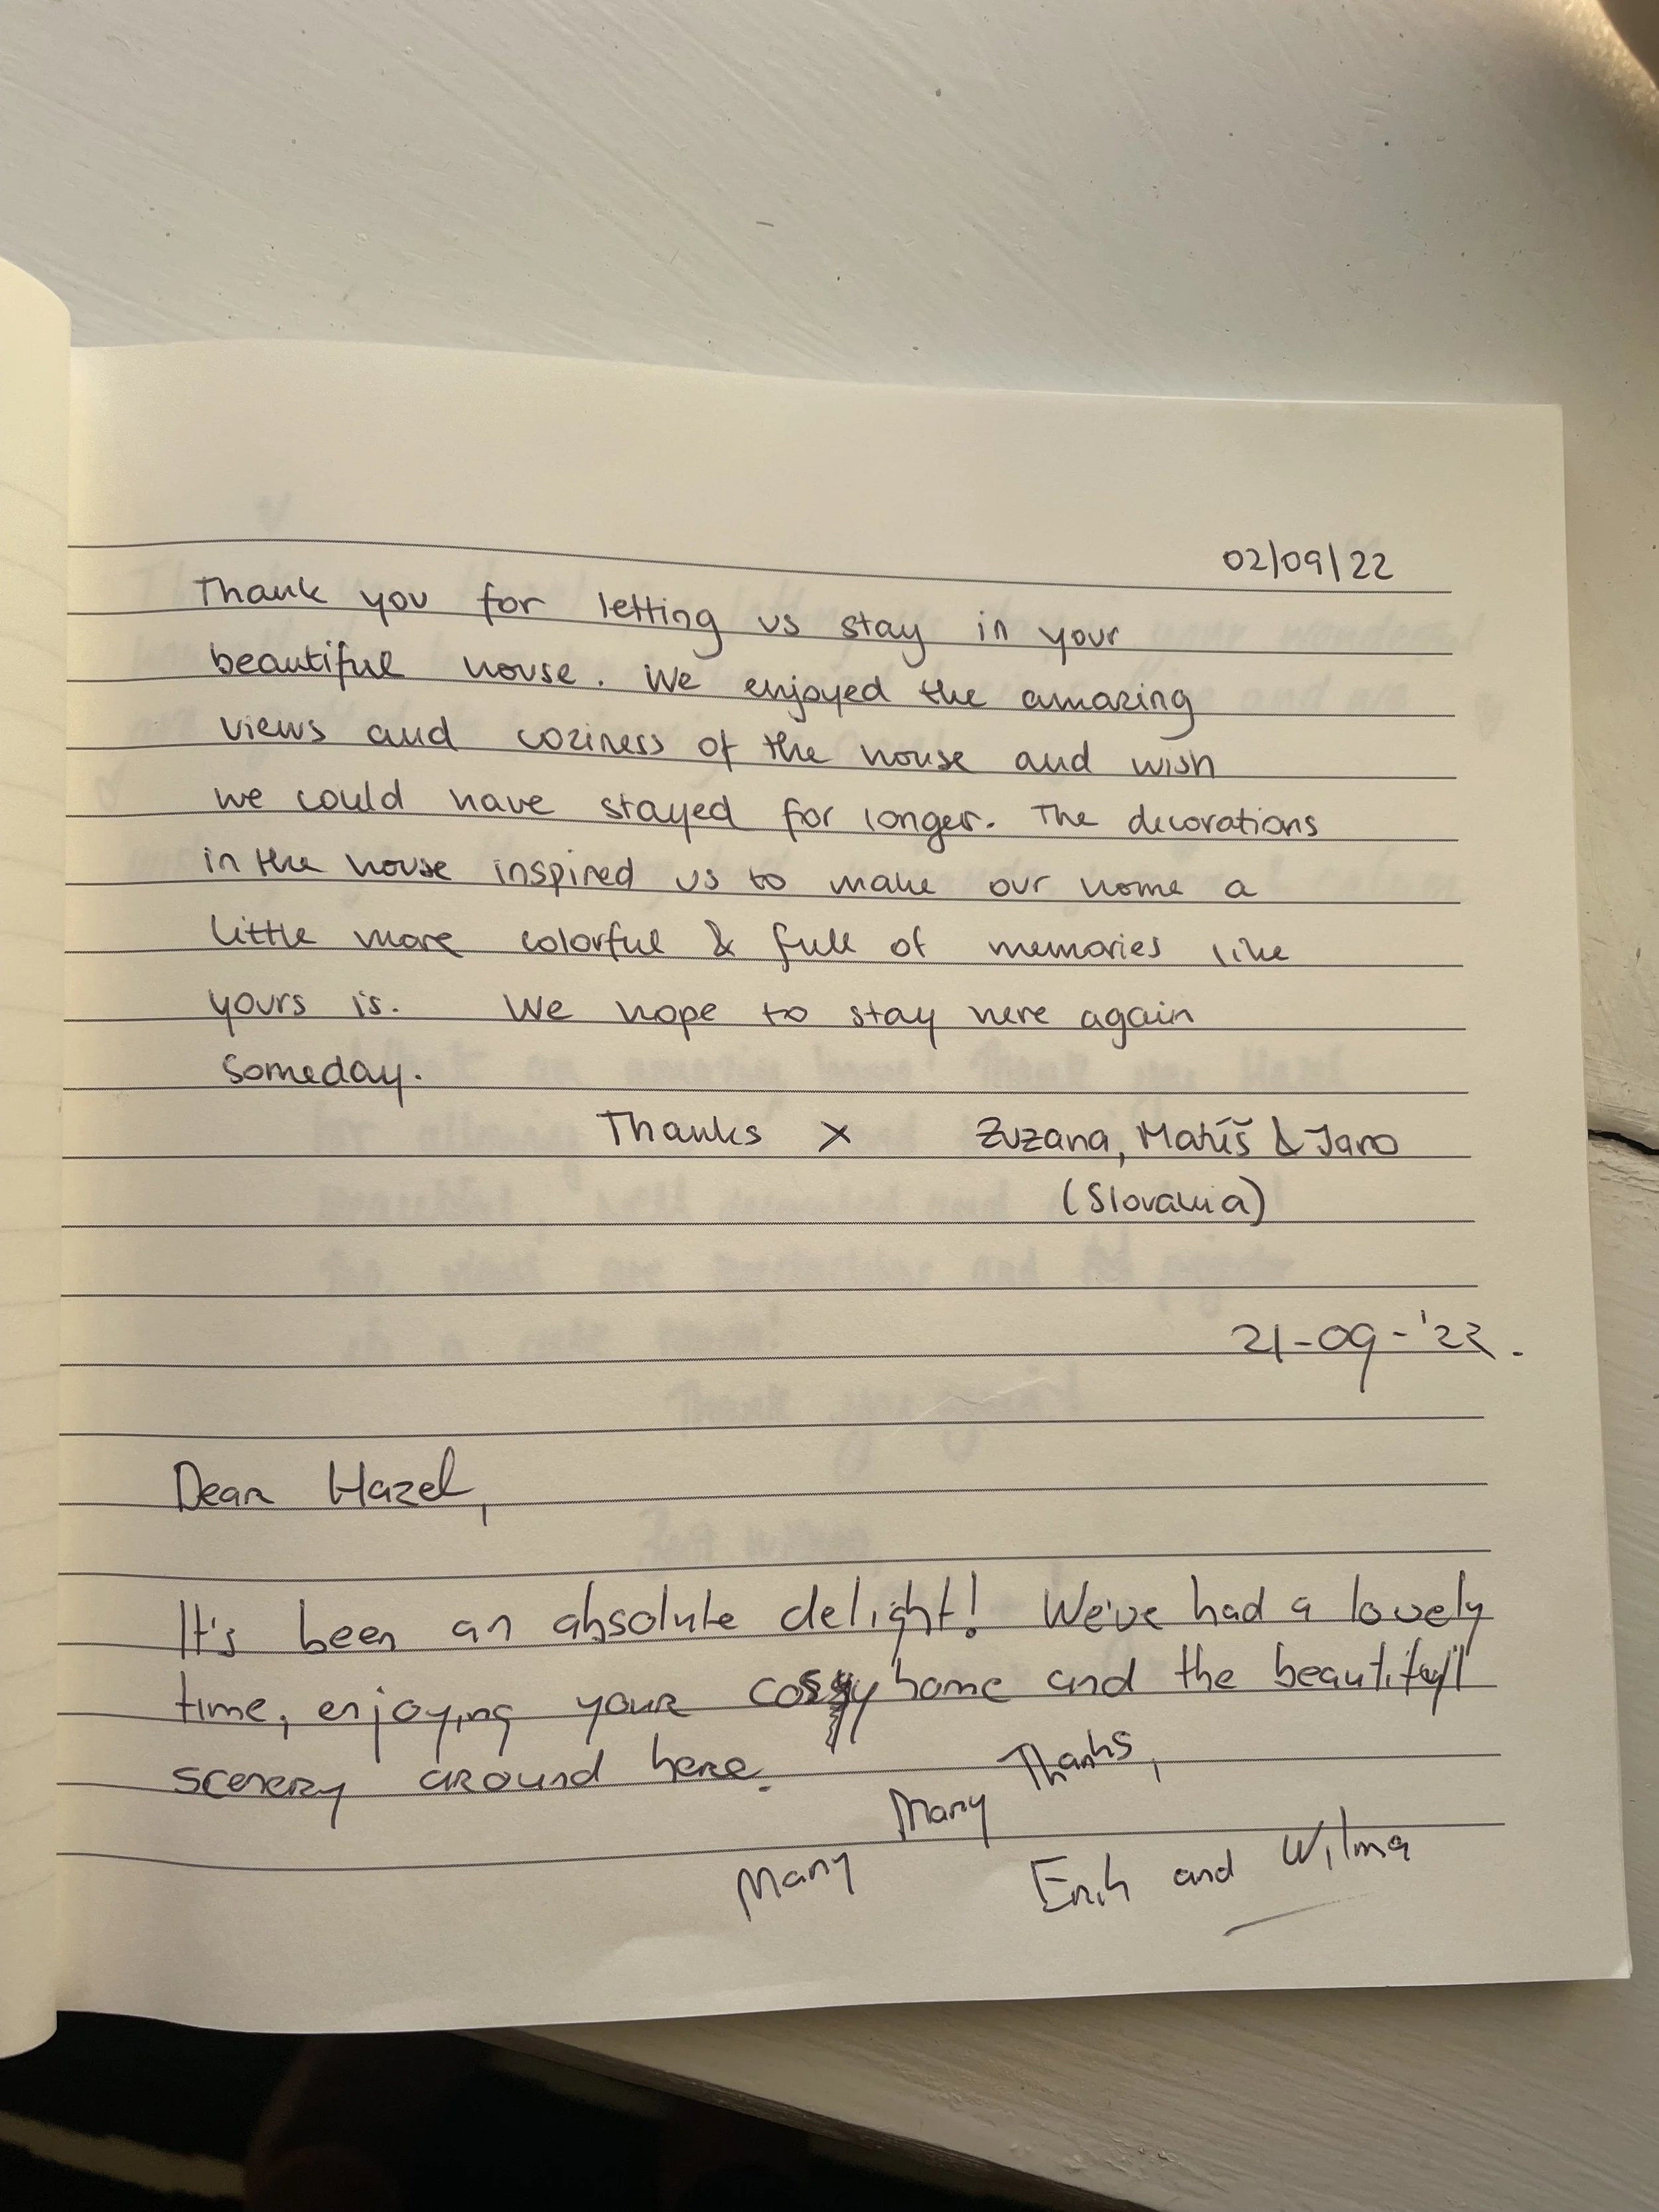 02/09/22
Thank you for letting us stay in your
beautiful house. We enjoyed the amazing
views and coziness of the house and wish
we could have stayed for longer. The decorations
in the house inspired us to make our home a
little more colorful & full of memories like
yours is. We hope to stay here again
someday.
Thanks x Zuzana, Matúš & Jaro
(Slovakia)
21-09-'22.
Dear Hazel,
It's been an absolute delight! We've had a lovely
time, enjoying your home and the beautifull
scenery around here.
Many Many Thanks,
Erik and Wilma